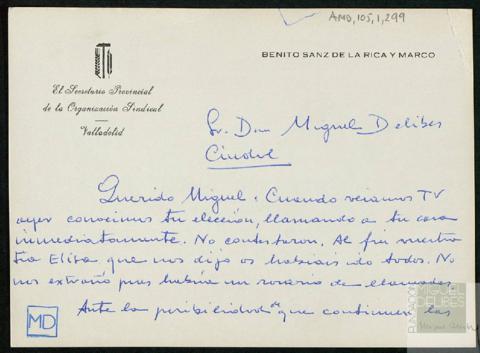 AMD,105,1,299
BENITO SANZ DE LA RICA Y MARCO
El Secretario Provincial
de la Organización Sindical
Valladolid
Sr. Don Miguel Delibes
Ciudad
Querido Miguel: Cuando veíamos TV
ayer conocimos tu elección, llamando a tu casa
inmediatamente. No contestaron. Al fin vuestra
tía Elisa que nos dijo os habíais ido todos. No
nos extrañó pues habría un rosario de llamadas.
Ante la posibilidad de que continuen las
MD
FUNDACIÓN
MIGUEL
DELIBES